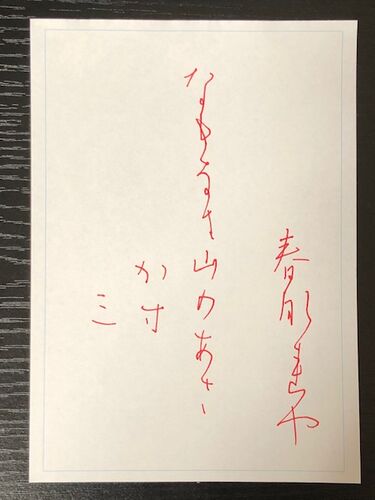 春那れや
なもなき山のあさ
か寸
三